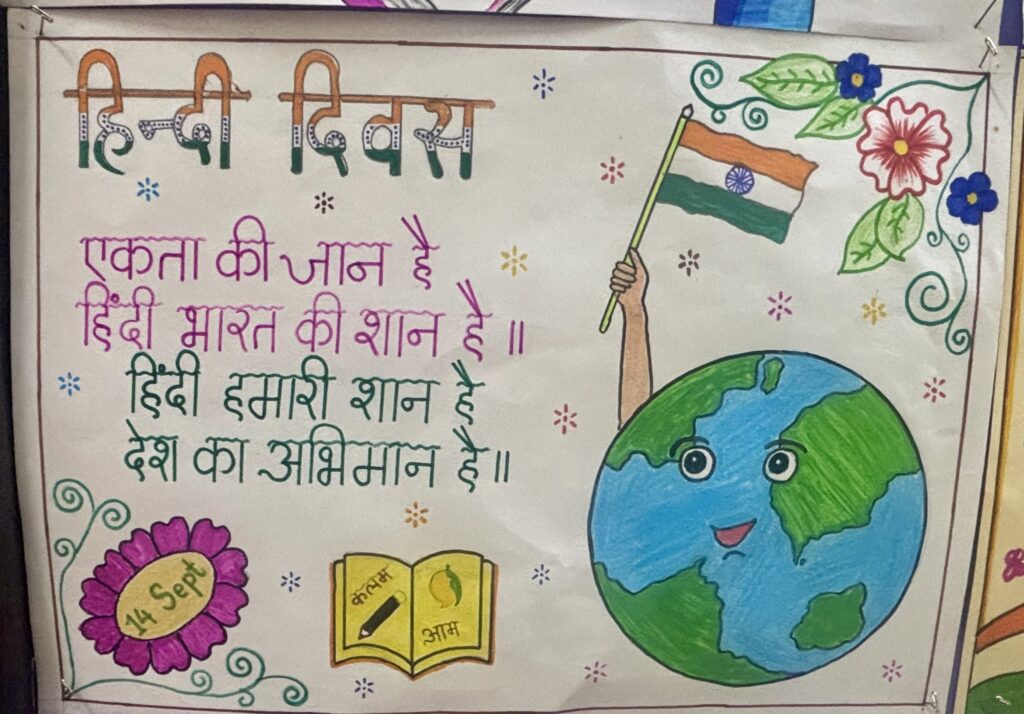 हिन्दी दिवस
एकता की जान है
हिंदी भारत की शान है ॥
हिंदी हमारी शान है
देश का अभिमान है ॥
14 Sept
कलम
आम